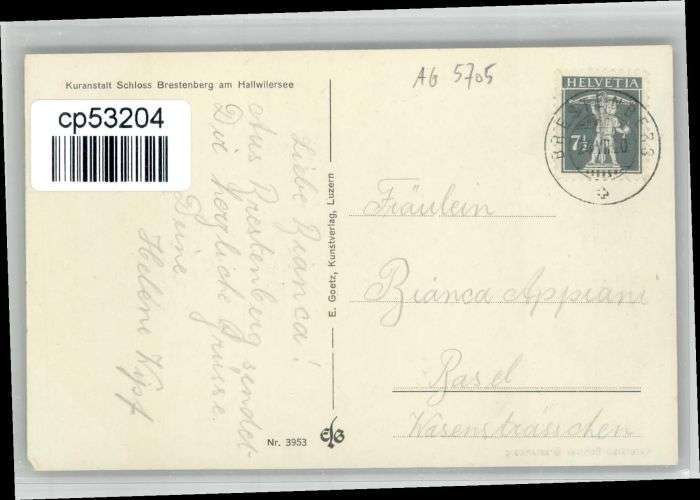 Kuranstalt Schloss Brestenberg am Hallwilersee
AG 5705
HELVETIA
7½
cp53204
Liebe Bianca!
Aus Brestenberg sendet
Dir herzliche Grüsse.
Deine
Helene
E. Goetz, Kunstverlag, Luzern
Fräulein
Bianca Appiani
Basel
Wasensträsschen
Nr. 3953
EG